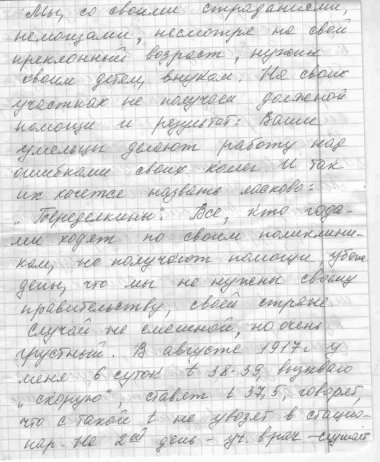 Мы, со своими страданиями,
немощами, несмотря на свой
преклонный возраст, нужны
своим детям, внукам. На своих
участках не получаем должной
помощи и результат: Ваши
умельцы делают работу над
ошибками своих коллег. И так
их хочется назвать ласково:
„Переделкины". Все, кто года-
ми ходят по своим поликлини-
кам, не получают помощи, убеж
дены, что мы не нужны своему
правительству, своей стране.
Случай не смешной, но очень
грустный. В августе 1917г у
меня 6 суток t 38-39, вызываю
„скорую", ставят t 37,5, говорят,
что с такой t не увозят в стацио-
нар. На 2ой день - уч. врач - слушает